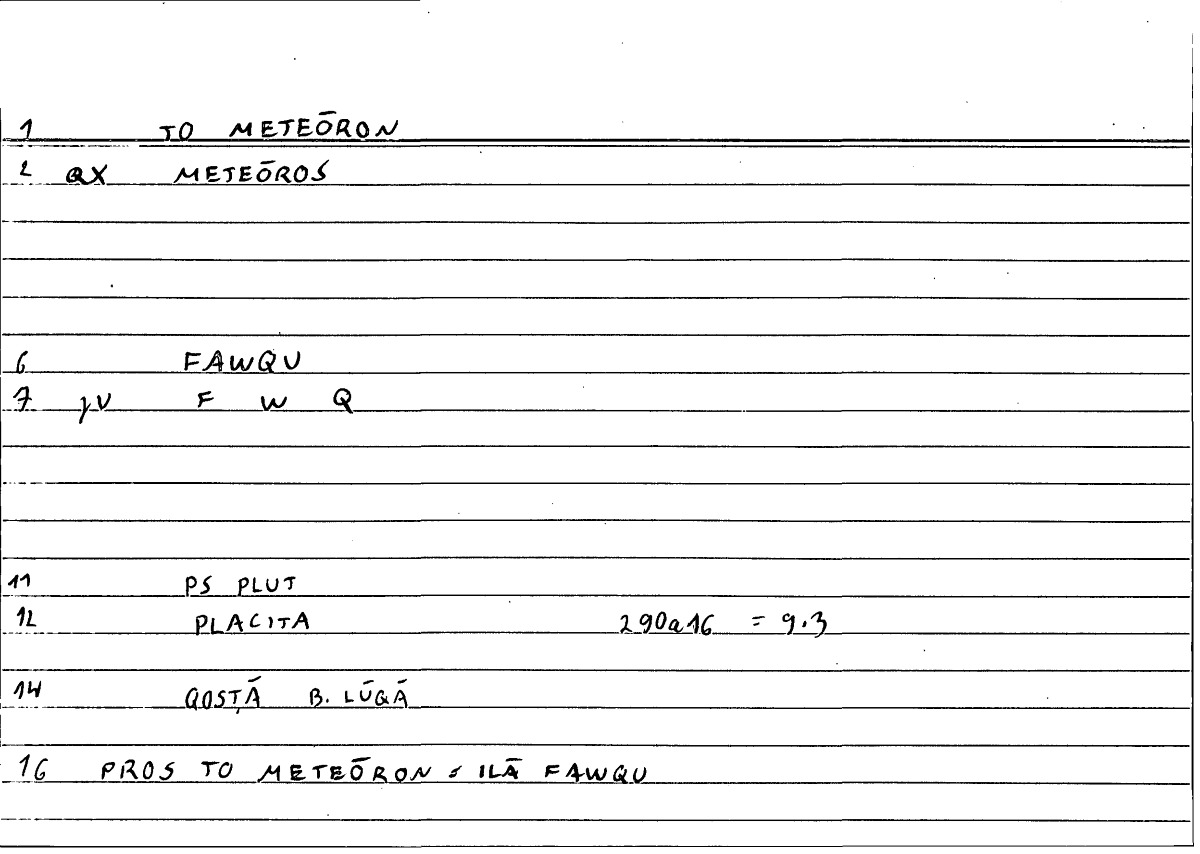 1 TO METEŌRON
2 QX METEŌROS
6 FAWQU
7 jV F W Q
11 PS PLUT
12 PLACITA 290a16 = 9.3
14 QOSṬĀ B. LŪQĀ
16 PROS TO METEŌRON = ILĀ FAWQU